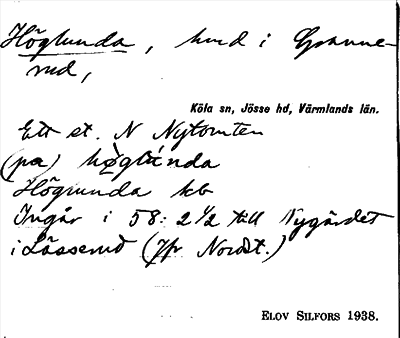 Höglunda, hmd i Granne-
rud,
Köla sn, Jösse hd, Värmlands län.
Ett st. N Nytomten
(pa) høglúnda
Höglunda kb
Ingår i 58: 2 1/2 till Nygärdet
i Lässerud (Jfr Nordst.)
ELOV SILFORS 1938.